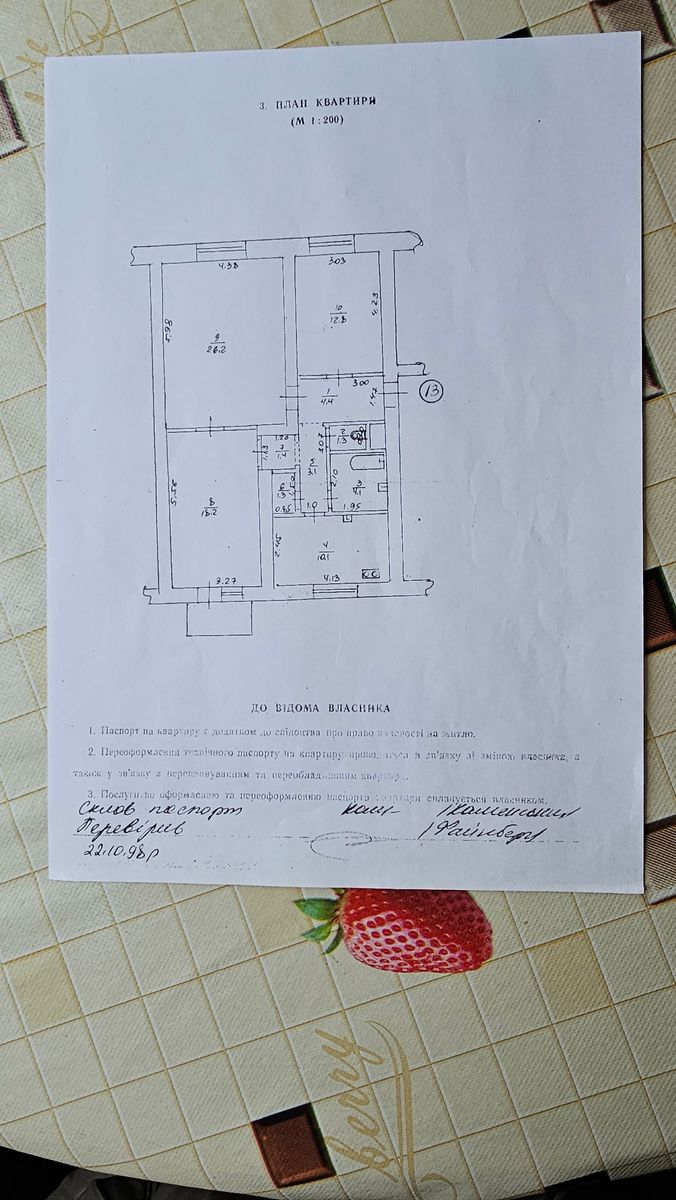 3. ПЛАН КВАРТИРИ
(М 1:200)
4.38
3.03
5.98
9
26.2
10
12.8
4.23
1
4.4
3.00
1.47
13
1.20
7
1.4
1.13
2
1.3
5
3.1
3.07
6
1.3
0.85
1.0
3
4.1
2.10
1.95
8
18.2
5.56
3.27
4
10.1
2.45
4.13
ДО ВІДОМА ВЛАСНИКА
1. Паспорт на квартиру є додатком до свідоцтва про право власності на житло.
2. Переоформлення технічного паспорту на квартиру проводиться в зв'язку зі зміною власника, а
також у зв'язку з переплануванням та переобладнанням квартири.
3. Послуги по оформленню та переоформленню паспорта квартири сплачується власником.
Склав паспорт
Перевірив
22.10.98р
berry